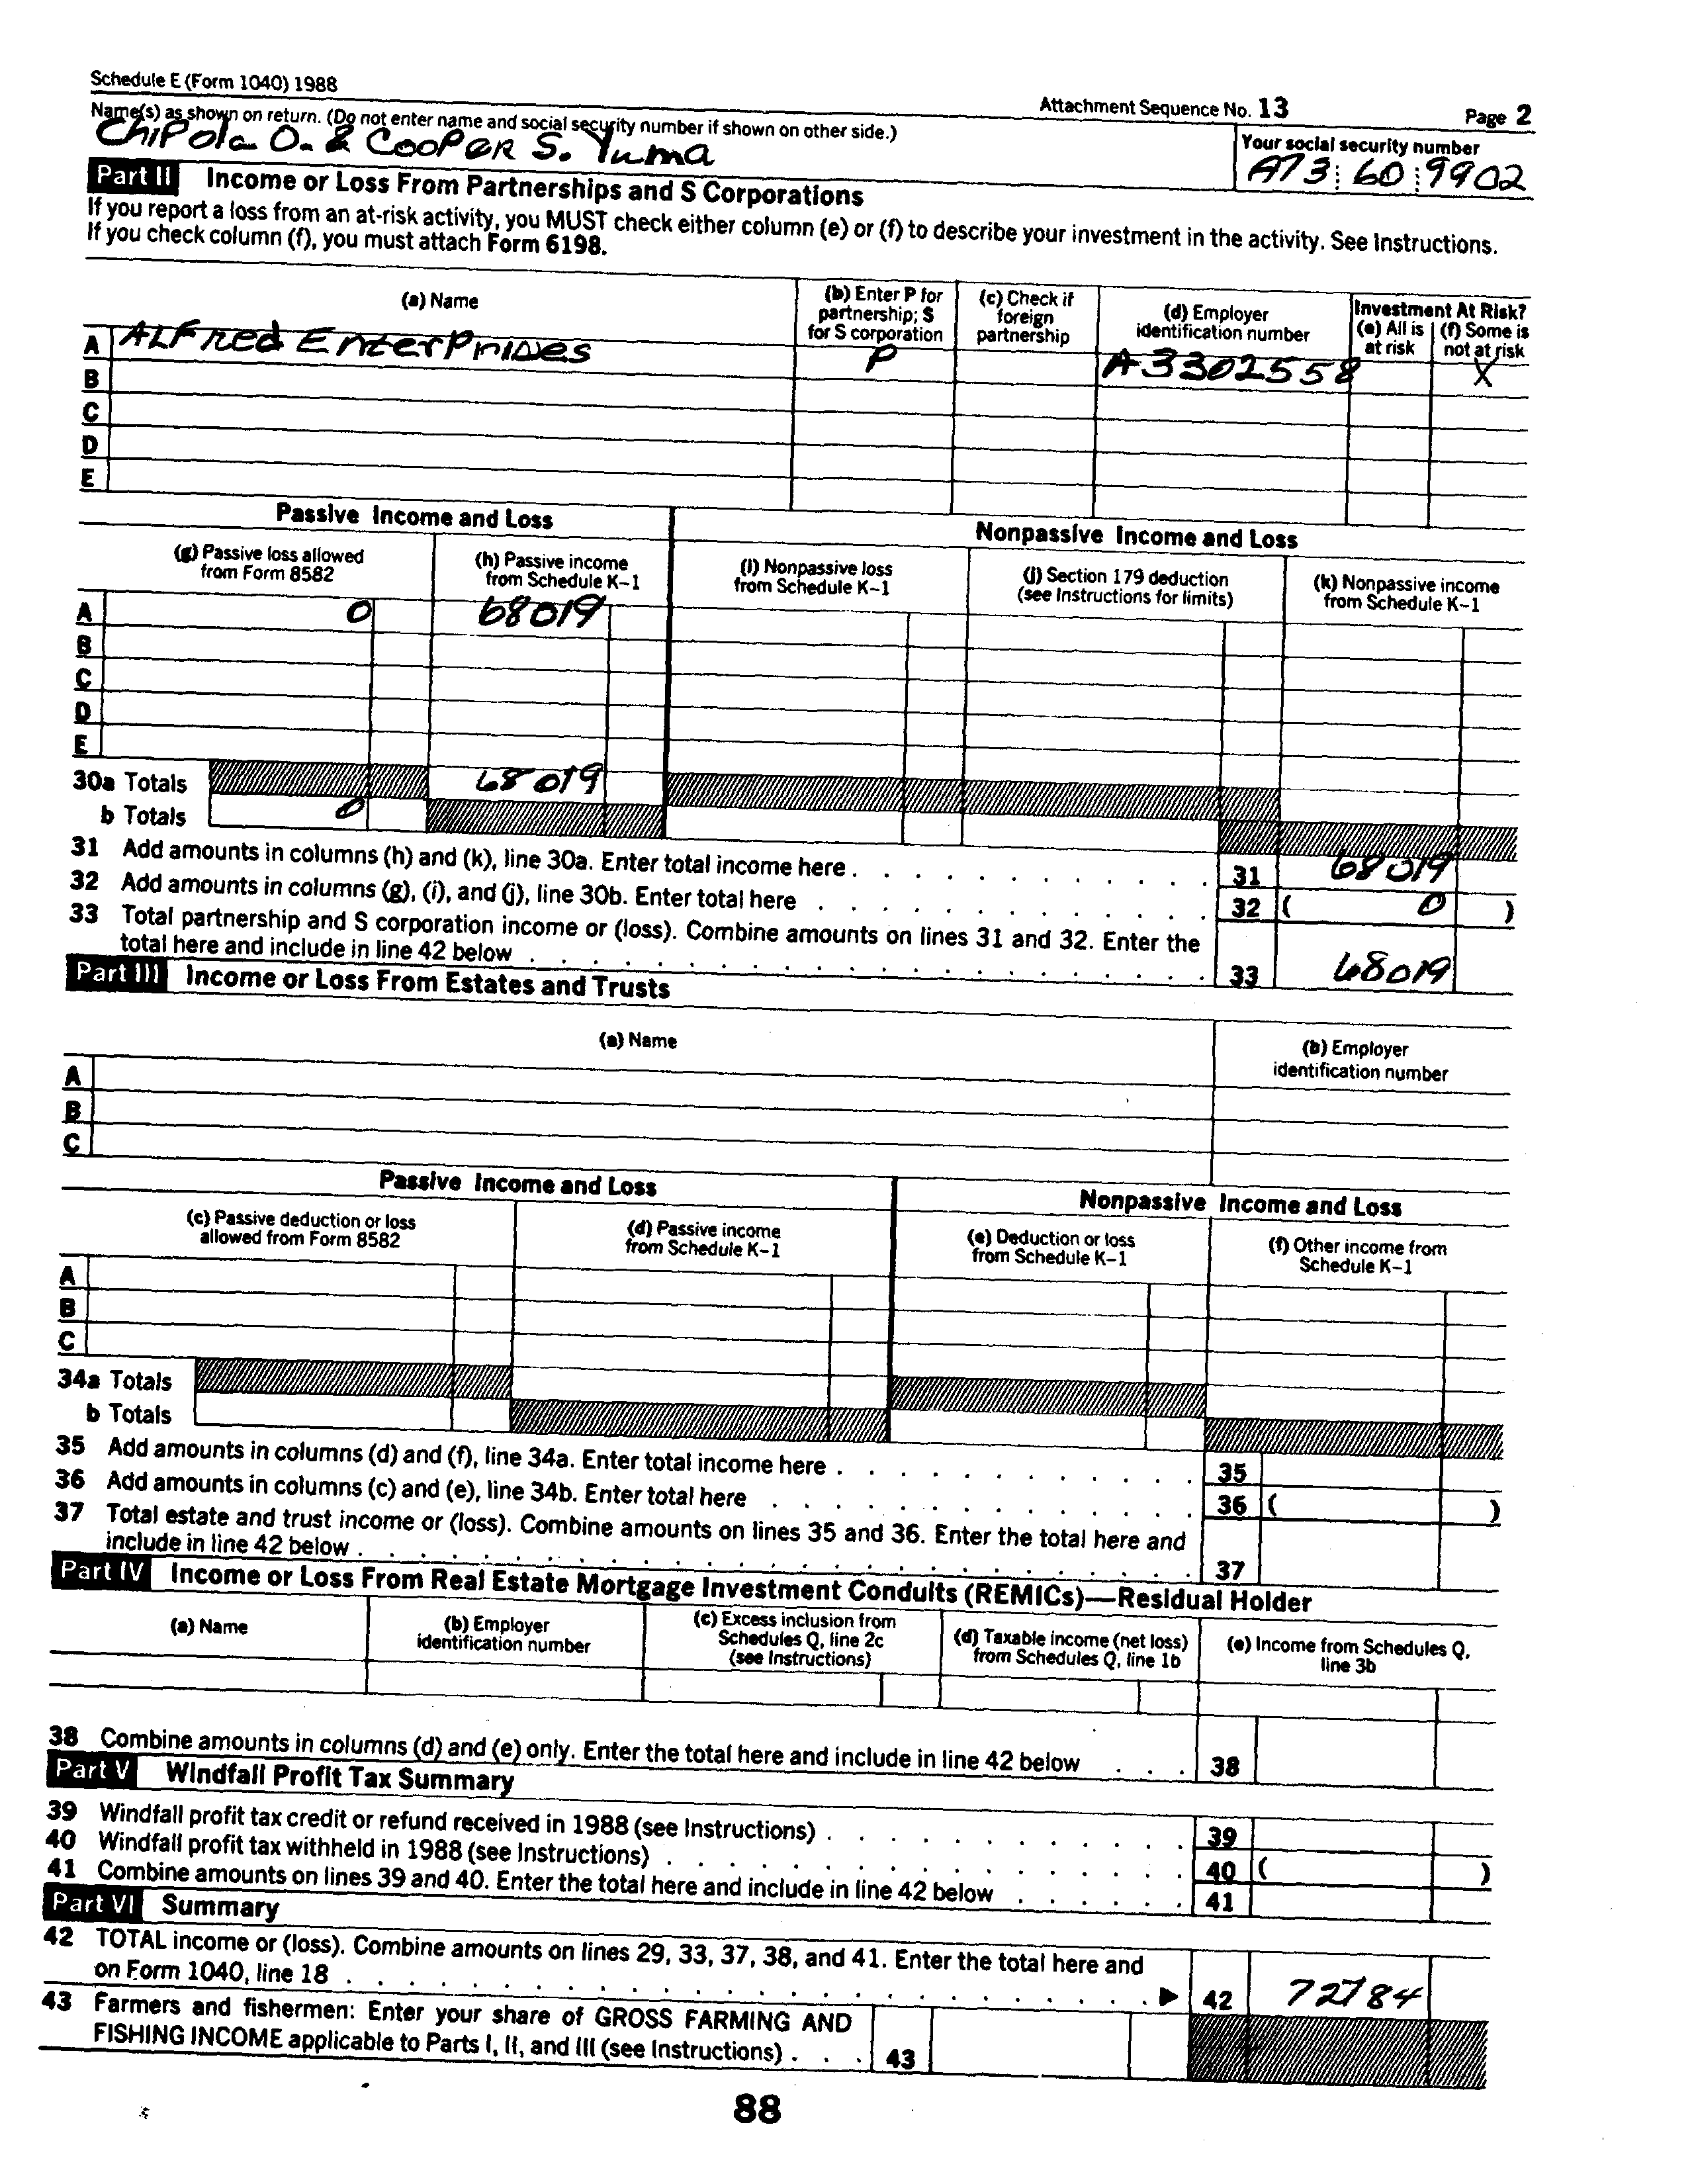 Schedule E (Form 1040) 1988
Attachment Sequence No. 13
Page 2
Name(s) as shown on return. (Do not enter name and social security number if shown on other side.)
Your social security number
Chipola O. & Cooper S. Yuma
A73 60 9902
Part II Income or Loss From Partnerships and S Corporations
If you report a loss from an at-risk activity, you MUST check either column (e) or (f) to describe your investment in the activity. See Instructions.
If you check column (f), you must attach Form 6198.
(a) Name
(b) Enter P for partnership; S for S corporation
(c) Check if foreign partnership
(d) Employer identification number
Investment At Risk?
(e) All is at risk
(f) Some is not at risk
A ALFred EnterPrises P A3302558 X
B
C
D
E
Passive Income and Loss
Nonpassive Income and Loss
(g) Passive loss allowed from Form 8582
(h) Passive income from Schedule K-1
(i) Nonpassive loss from Schedule K-1
(j) Section 179 deduction (see Instructions for limits)
(k) Nonpassive income from Schedule K-1
A 0 68019
B
C
D
E
30a Totals 68019
b Totals 0
31 Add amounts in columns (h) and (k), line 30a. Enter total income here . . . 31 68019
32 Add amounts in columns (g), (i), and (j), line 30b. Enter total here . . . 32 ( 0 )
33 Total partnership and S corporation income or (loss). Combine amounts on lines 31 and 32. Enter the
total here and include in line 42 below . . . 33 68019
Part III Income or Loss From Estates and Trusts
(a) Name
(b) Employer identification number
A
B
C
Passive Income and Loss
Nonpassive Income and Loss
(c) Passive deduction or loss allowed from Form 8582
(d) Passive income from Schedule K-1
(e) Deduction or loss from Schedule K-1
(f) Other income from Schedule K-1
A
B
C
34a Totals
b Totals
35 Add amounts in columns (d) and (f), line 34a. Enter total income here . . . 35
36 Add amounts in columns (c) and (e), line 34b. Enter total here . . . 36 ( )
37 Total estate and trust income or (loss). Combine amounts on lines 35 and 36. Enter the total here and
include in line 42 below . . . 37
Part IV Income or Loss From Real Estate Mortgage Investment Conduits (REMICs)—Residual Holder
(a) Name
(b) Employer identification number
(c) Excess inclusion from Schedules Q, line 2c (see Instructions)
(d) Taxable income (net loss) from Schedules Q, line 1b
(e) Income from Schedules Q, line 3b
38 Combine amounts in columns (d) and (e) only. Enter the total here and include in line 42 below . . . 38
Part V Windfall Profit Tax Summary
39 Windfall profit tax credit or refund received in 1988 (see Instructions) . . . 39
40 Windfall profit tax withheld in 1988 (see Instructions) . . . 40 ( )
41 Combine amounts on lines 39 and 40. Enter the total here and include in line 42 below . . . 41
Part VI Summary
42 TOTAL income or (loss). Combine amounts on lines 29, 33, 37, 38, and 41. Enter the total here and
on Form 1040, line 18 . . . ▶ 42 72784
43 Farmers and fishermen: Enter your share of GROSS FARMING AND
FISHING INCOME applicable to Parts I, II, and III (see Instructions) . . . 43
88